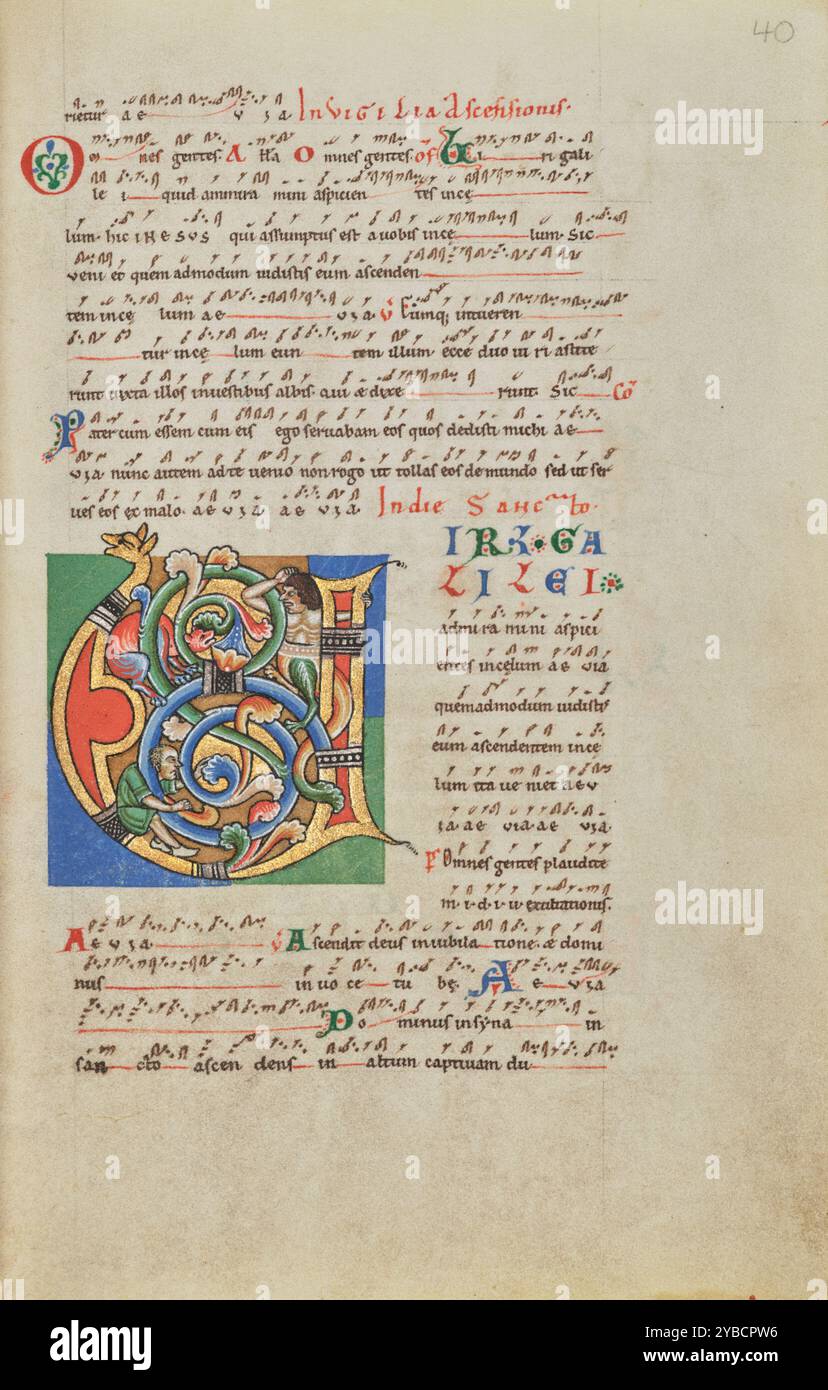 40
rietur a e v ɜ a In VIGILIA Ascensionis.
Omnes gentes. A lla Omnes gentes. of Viri gali
le i quid ammira mini aspicien tes incę
lum. hic IHESVS qui assumptus est a vobis incę lum. Sic
veni et quem admodum uidistis eum ascenden
tem incę lum a e v ɜ a. V Cumq; intueren
tur incę lum eun tem illum. ecce duo ui ri astite
runt iuxta illos inuestibus albis. qui & dixe runt. Sic Co
Pater cum essem cum eis ego seruabam eos quos dedisti michi a e
v ɜ a nunc autem ad te uenio non rogo ut tollas eos de mundo sed ut ser
ues eos ex malo. a e v ɜ a a e v ɜ a. In die Sancto.
IRI. GA
LILEI.
admira mini aspici
entes incęlum a e v ɜ a
quemadmodum uidistis
eum ascendentem incę
lum ita ue niet a e v
ɜ a. a e v ɜ a. a e v ɜ a.
P Omnes gentes plaudite
m. i. d. i. u. exultationis.
A e v ɜ a V Ascendit deus iniubila tione. & domi
nus in uo ce tu bę. A e v ɜ a
Dominus insyna in
san cto ascen dens in altum captiuam du
alamy
Image ID: 2YBCPW6
www.alamy.com